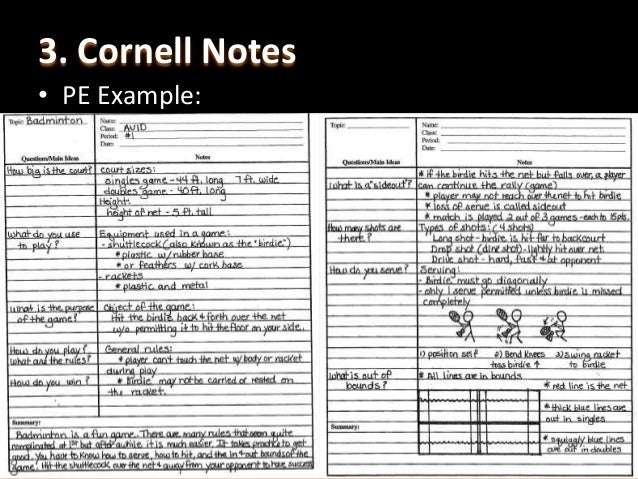 3. Cornell Notes
• PE Example:
Topic: Badminton
Name:
Class: AVID
Period: #1
Date:
Questions/Main Ideas
Notes
How big is the court?
court sizes:
singles game - 44 ft. long 7 ft. wide
doubles game - 40 ft. long
Height:
height of net - 5 ft. tall
What do you use to play?
Equipment used in a game:
- shuttlecock (also known as the "birdie")
* plastic w/ rubber base
* or feathers w/ cork base
- rackets
* plastic and metal
What is the purpose of the game?
Object of the game:
Hit the birdie back & forth over the net
w/o permitting it to hit the floor on your side.
How do you play?
What are the rules?
General rules:
* player can't touch the net w/ body or racket
during play
How do you win?
* Birdie may not be carried or rested on
the racket.
Summary:
Badminton is a fun game. There are many rules that seem quite
complicated at 1st but after awhile it is much easier. It takes practice to get
good. You have to know how to serve, how to hit, and the in & out bounds of the
game. Hit the shuttlecock over the net & away from your opponent to have success
Topic:
Name:
Class:
Period:
Date:
Questions/Main Ideas
Notes
* if the birdie hits the net but falls over, a player
What is a "sideout"?
can continue the rally (game)
* player may not reach over the net to hit birdie
* loss of serve is called sideout
* match is played 2 out of 3 games - each to 15pts.
How many shots are there?
Types of shots: (4 shots)
Long shot - birdie is hit far to backcourt
Drop shot (dink shot) - lightly hit over net
Drive shot - hard, fast & at opponent
How do you serve?
Serving:
- Birdie must go diagonally
- only 1 serve permitted unless birdie is missed
completely
1) position self
2) Bend Knees
toss birdie ↑
3) Swing racket
to birdie
What is out of bounds?
* All lines are in bounds
* red line is the net
* thick blue lines are
out in singles
Summary:
* squiggly blue lines
are out in doubles